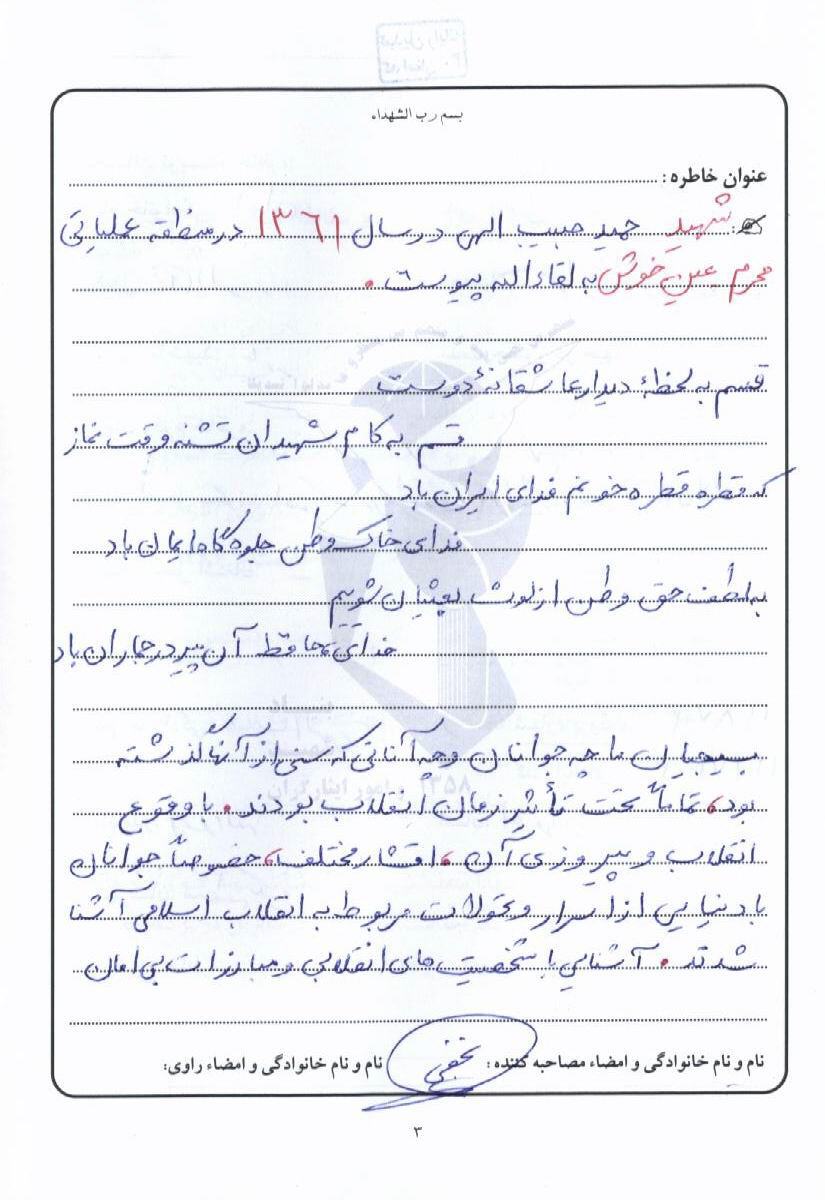 بسم رب الشهداء
عنوان خاطره:
شهید حمید حبیب الهی در سال ۱۳۶۱ در منطقه عملیاتی
محرم عین خوش به لقاءالله پیوست.
قسم به لحظهٔ دیدار عاشقانهٔ دوست
قسم به کام شهیدان تشنه وقت نماز
که قطره قطره خونم فدای ایران باد
فدای خاک وطن جلوه گاه ایمان باد
به لطف حق وطن از لوث بعثیان شوییم
خدای حافظ آن پیر در جماران باد
بسیجیان ما چه جوانان و چه آنانی که سنی از آنها گذشته
بود، تماماً تحت تأثیر زمان انقلاب بودند. با وقوع
انقلاب و پیروزی آن، اقشار مختلف، خصوصاً جوانان
با دنیایی از اسرار و تحولات مربوط به انقلاب اسلامی آشنا
شدند. آشنایی با شخصیت های انقلابی و مبارزات بی امان
نام و نام خانوادگی و امضاء مصاحبه کننده: نجفی نام و نام خانوادگی و امضاء راوی:
۳